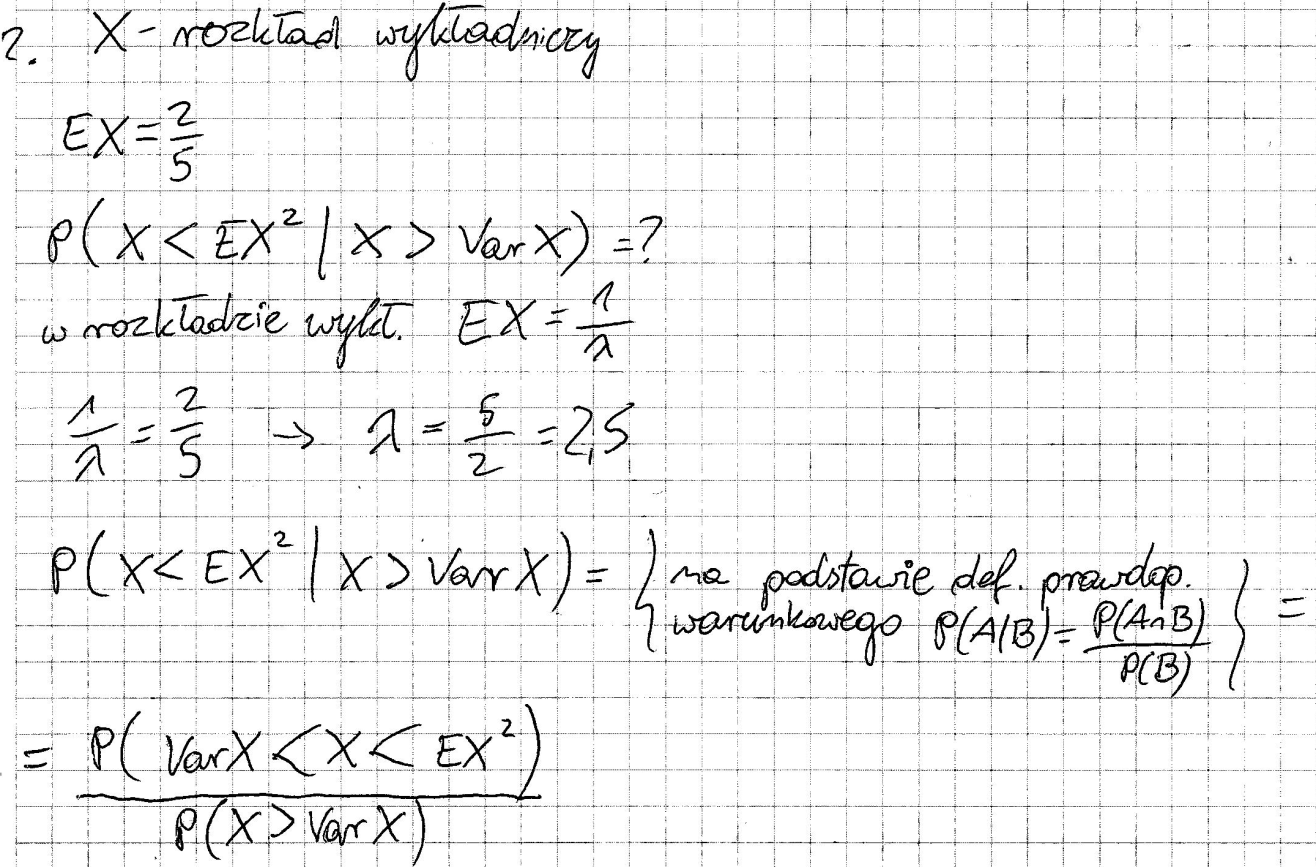 2. X - rozkład wykładniczy
EX = 2/5
P( X < EX² | X > Var X) = ?
w rozkładzie wykł. EX = 1/λ
1/λ = 2/5 → λ = 5/2 = 2,5
P( X < EX² | X > Var X) = { na podstawie def. prawdop.
warunkowego P(A|B) = P(A∩B)/P(B) } =
= P( Var X < X < EX² ) / P(X > Var X)